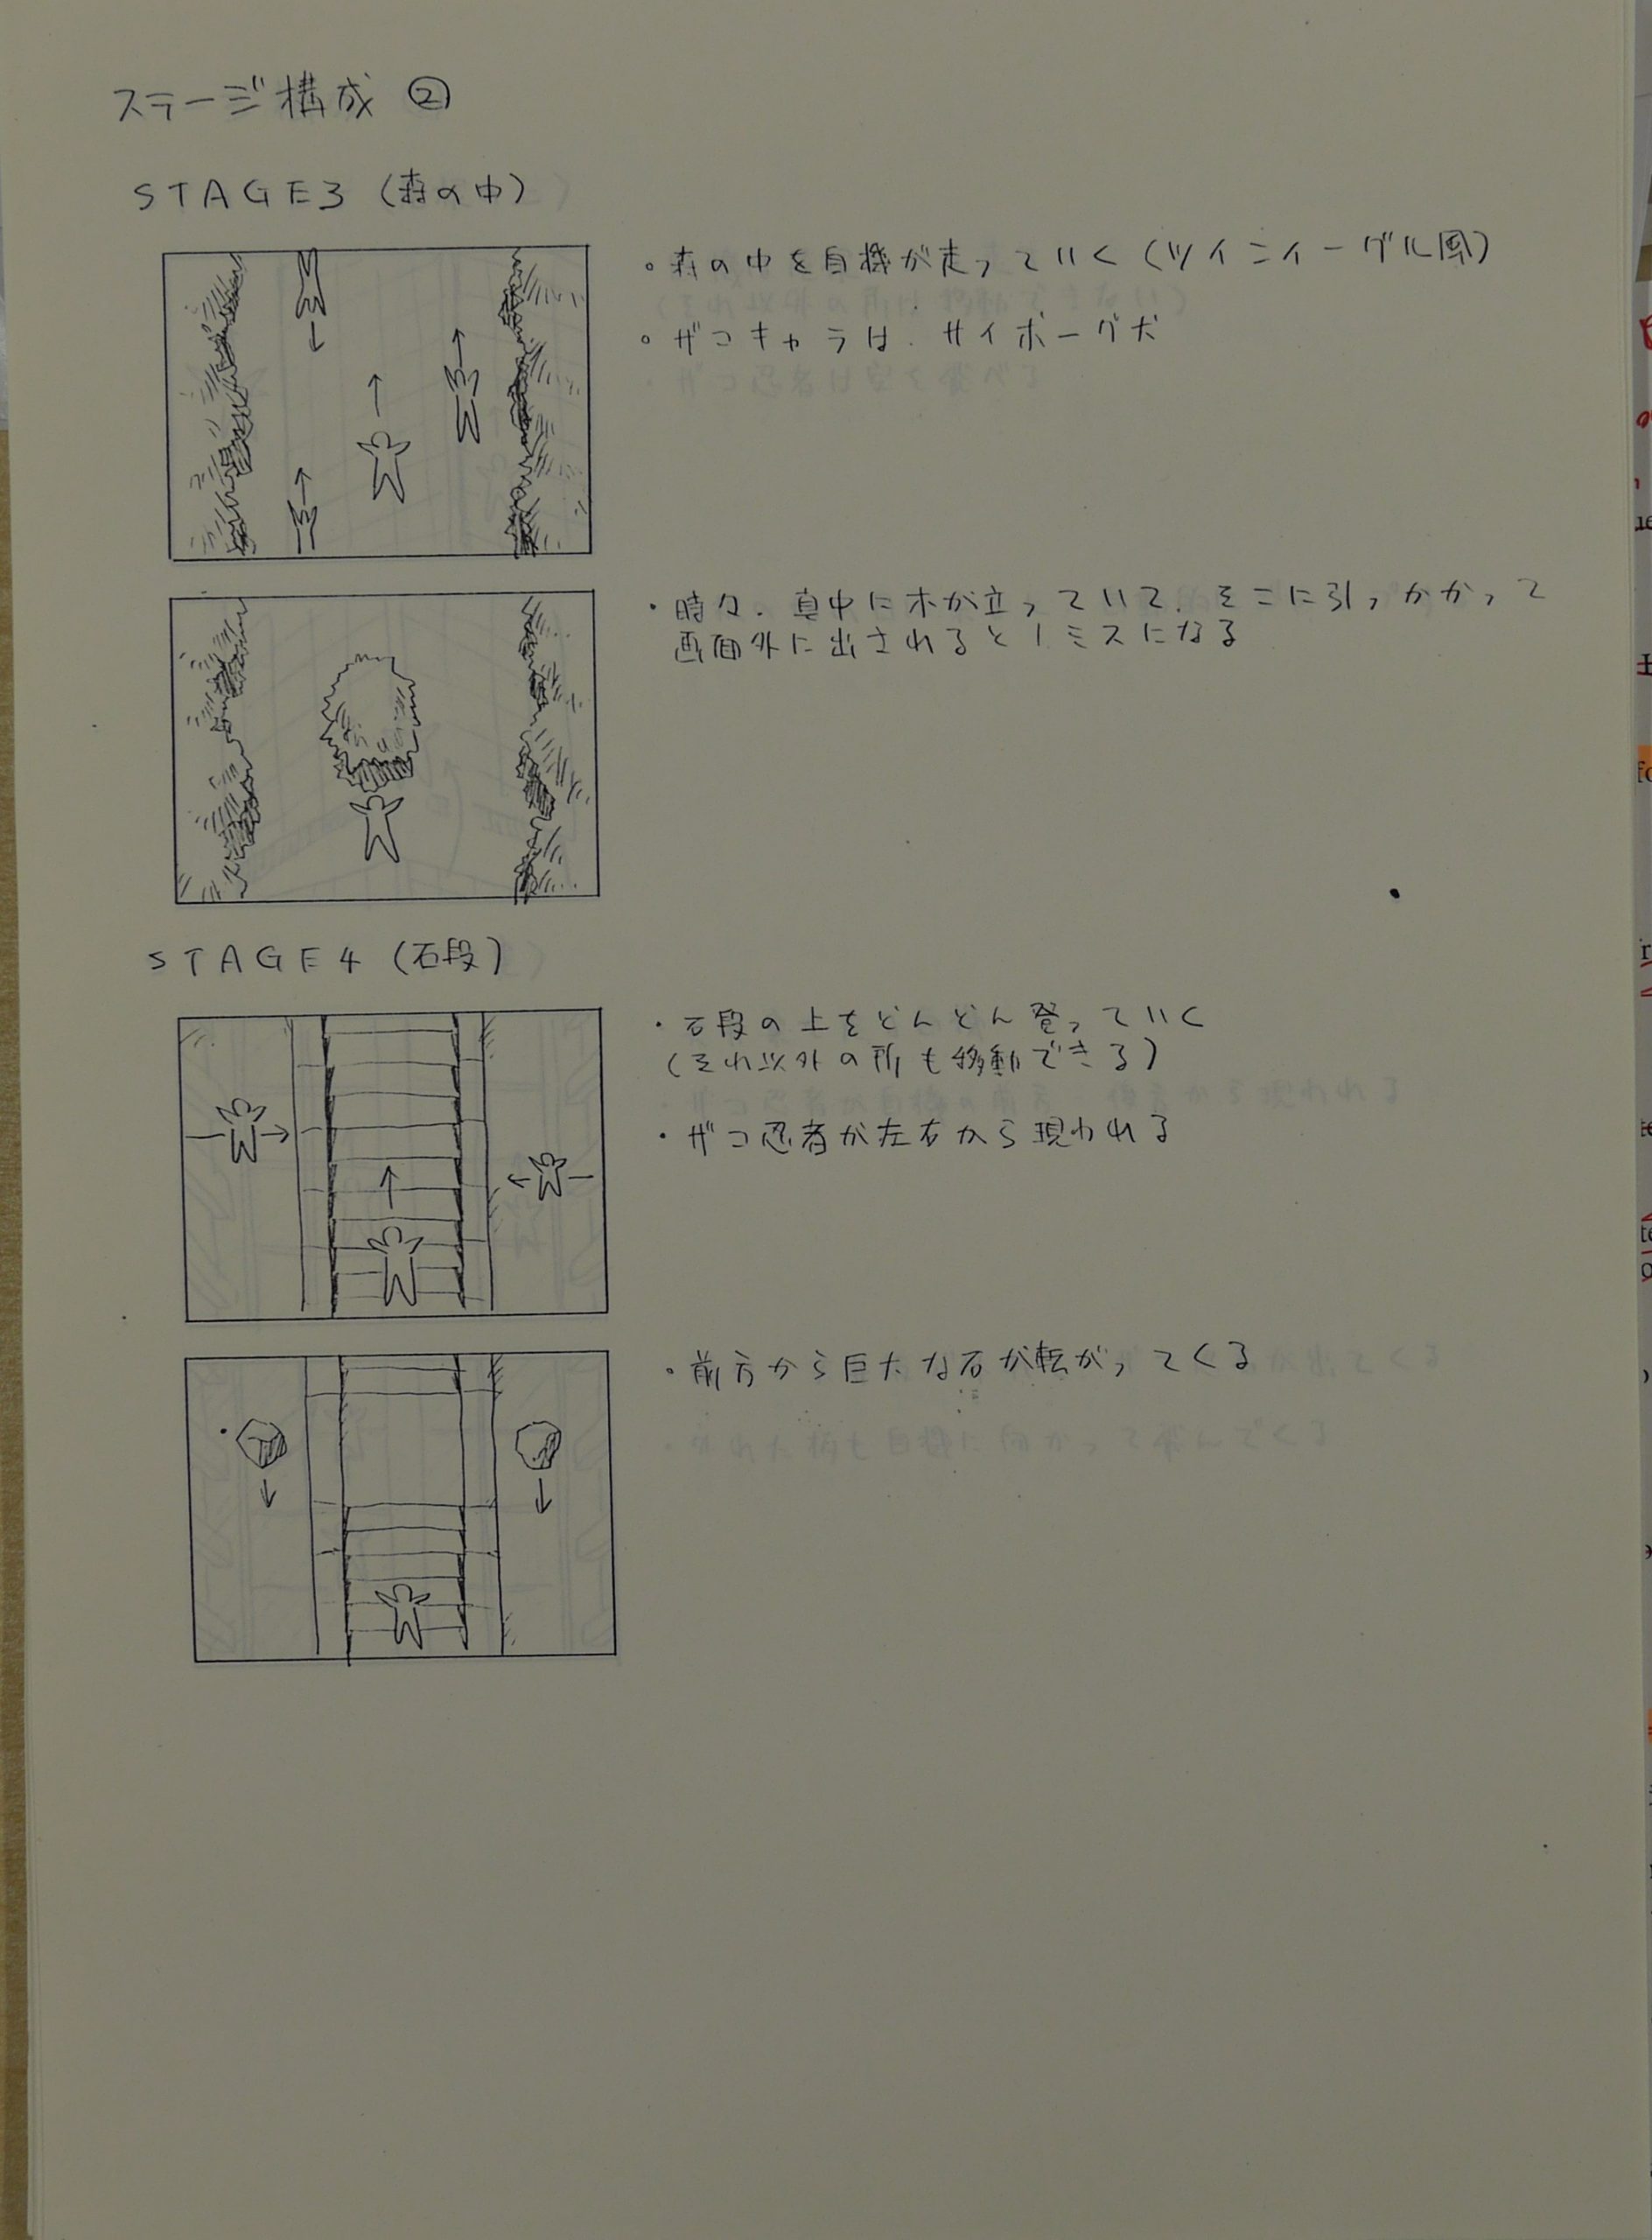 ステージ構成 ②
STAGE3 (森の中)
・森の中を自機が走っていく (ツインイーグル風)
・ザコキャラは、サイボーグ犬
・時々、真中に木が立っていて、そこに引っかかって
画面外に出されると1ミスになる
STAGE4 (石段)
・石段の上をどんどん登っていく
(それ以外の所も移動できる)
・ザコ忍者が左右から現われる
・前方から巨大な石が転がってくる